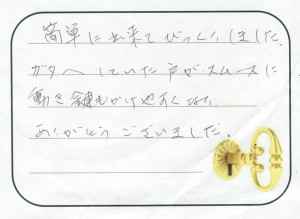 簡単に出来てびっくりしました。
ガタついていた戸がスムースに
動き鍵もかけやすくなり
ありがとうございました。